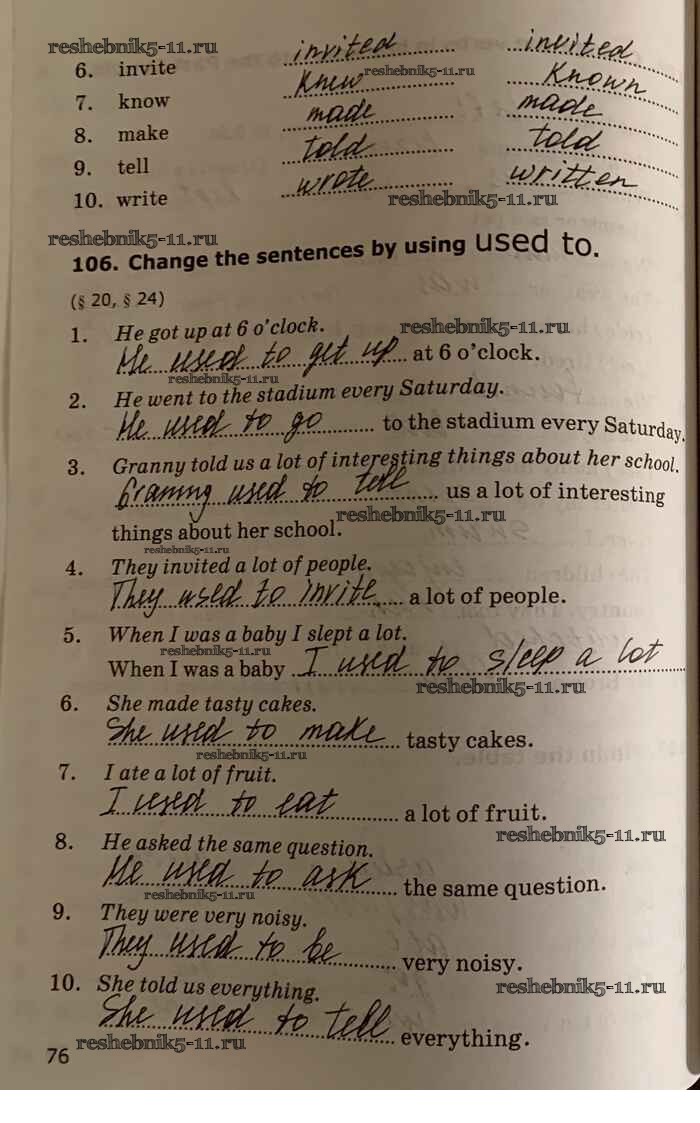 reshebnik5-11.ru
6. invite invited invited
reshebnik5-11.ru
7. know knew known
8. make made made
9. tell told told
10. write wrote written
reshebnik5-11.ru
reshebnik5-11.ru
106. Change the sentences by using used to.
(§ 20, § 24)
1. He got up at 6 o'clock.
reshebnik5-11.ru
He used to get up at 6 o'clock.
reshebnik5-11.ru
2. He went to the stadium every Saturday.
He used to go to the stadium every Saturday.
3. Granny told us a lot of interesting things about her school.
Granny used to tell us a lot of interesting
reshebnik5-11.ru
things about her school.
reshebnik5-11.ru
4. They invited a lot of people.
They used to invite a lot of people.
5. When I was a baby I slept a lot.
reshebnik5-11.ru
When I was a baby I used to sleep a lot
reshebnik5-11.ru
6. She made tasty cakes.
She used to make tasty cakes.
reshebnik5-11.ru
7. I ate a lot of fruit.
I used to eat a lot of fruit.
reshebnik5-11.ru
8. He asked the same question.
He used to ask the same question.
reshebnik5-11.ru
9. They were very noisy.
They used to be very noisy.
10. She told us everything.
reshebnik5-11.ru
She used to tell everything.
76 reshebnik5-11.ru